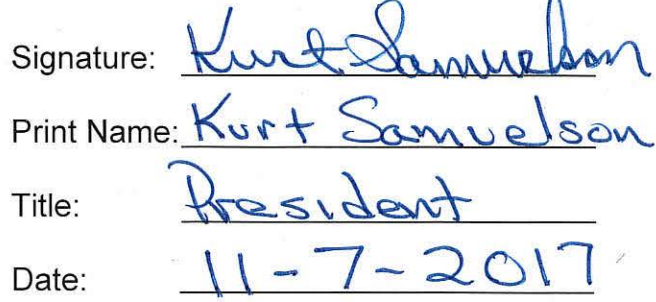 Signature: Kurt Samuelson
Print Name: Kurt Samuelson
Title: President
Date: 11-7-2017